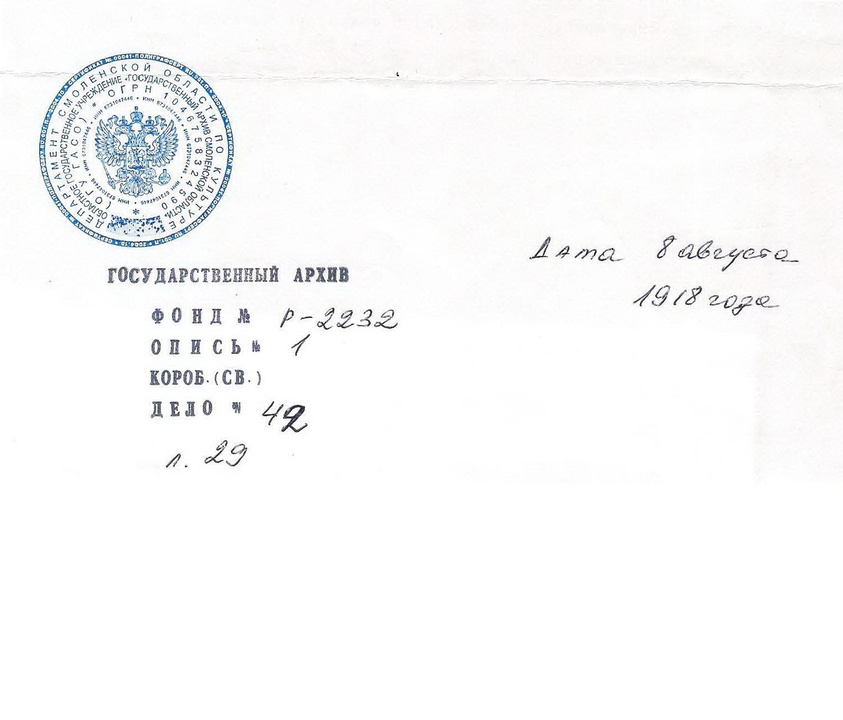 ДЕПАРТАМЕНТ СМОЛЕНСКОЙ ОБЛАСТИ ПО КУЛЬТУРЕ
ОБЛАСТНОЕ ГОСУДАРСТВЕННОЕ УЧРЕЖДЕНИЕ «ГОСУДАРСТВЕННЫЙ АРХИВ СМОЛЕНСКОЙ ОБЛАСТИ»
(ОГУ ГАСО) * ОГРН 1046758324590
ГОСУДАРСТВЕННЫЙ АРХИВ
ФОНД № Р-2232
ОПИСЬ № 1
КОРОБ.(СВ.)
ДЕЛО № 42
л. 29
Дата 8 августа
1918 года